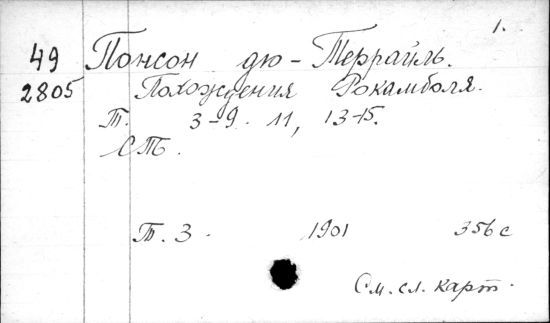 1.
49 Понсон дю-Террайль.
2805 Похождения Рокамболя.
Т. 3-9. 11, 13-15.
СПб.
Т. 3. 1901 356 с
См. сл. карт.